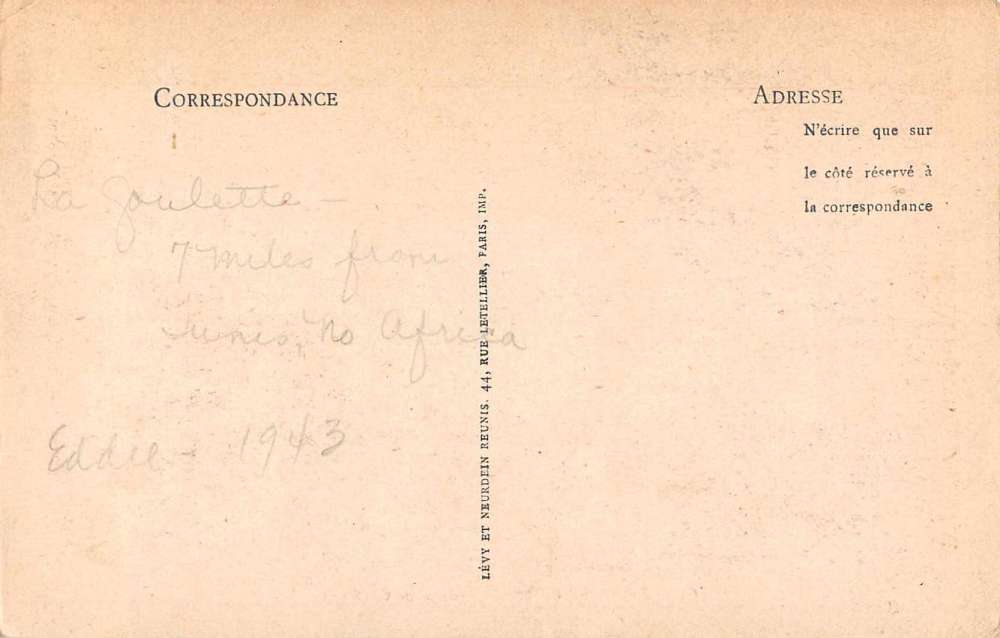 CORRESPONDANCE
ADRESSE
N'écrire que sur
le côté réservé à
la correspondance
La Goulette -
7 miles from
Tunis, No Africa
Eddie - 1943
LÉVY ET NEURDEIN REUNIS. 44, RUE LETELLIER, PARIS, IMP.